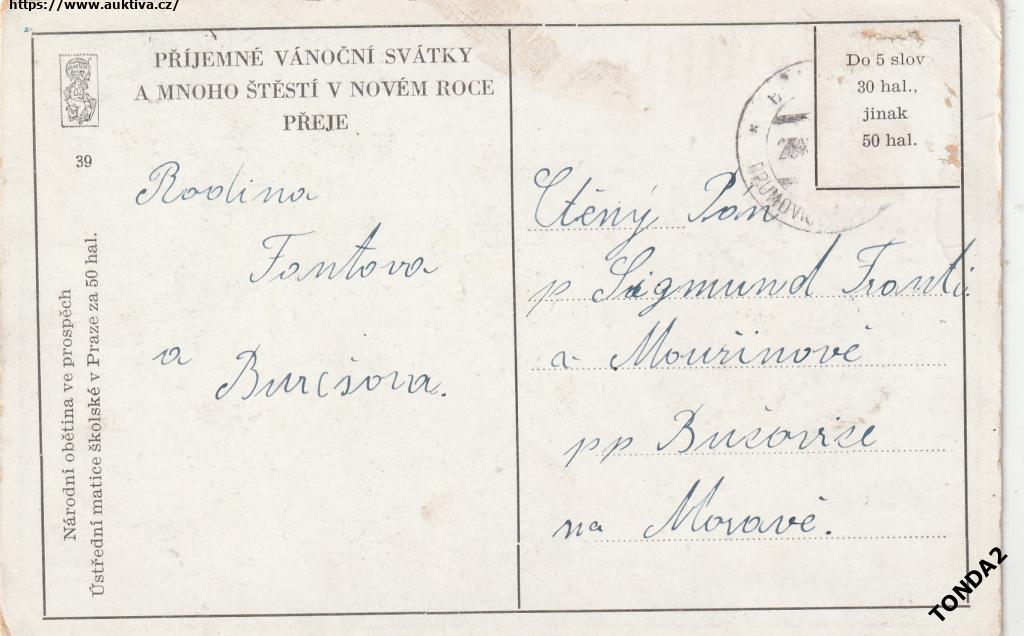 https://www.auktiva.cz/
PŘÍJEMNÉ VÁNOČNÍ SVÁTKY
A MNOHO ŠTĚSTÍ V NOVÉM ROCE
PŘEJE
39
Rodina
Fantova
a
Burešova.
Národní obětina ve prospěch
Ústřední matice školské v Praze za 50 hal.
Do 5 slov
30 hal.,
jinak
50 hal.
Ctěný Pán
p Sigmund Franti.
a Mouřinově
pp Bučovice
na Moravě.
TONDA2